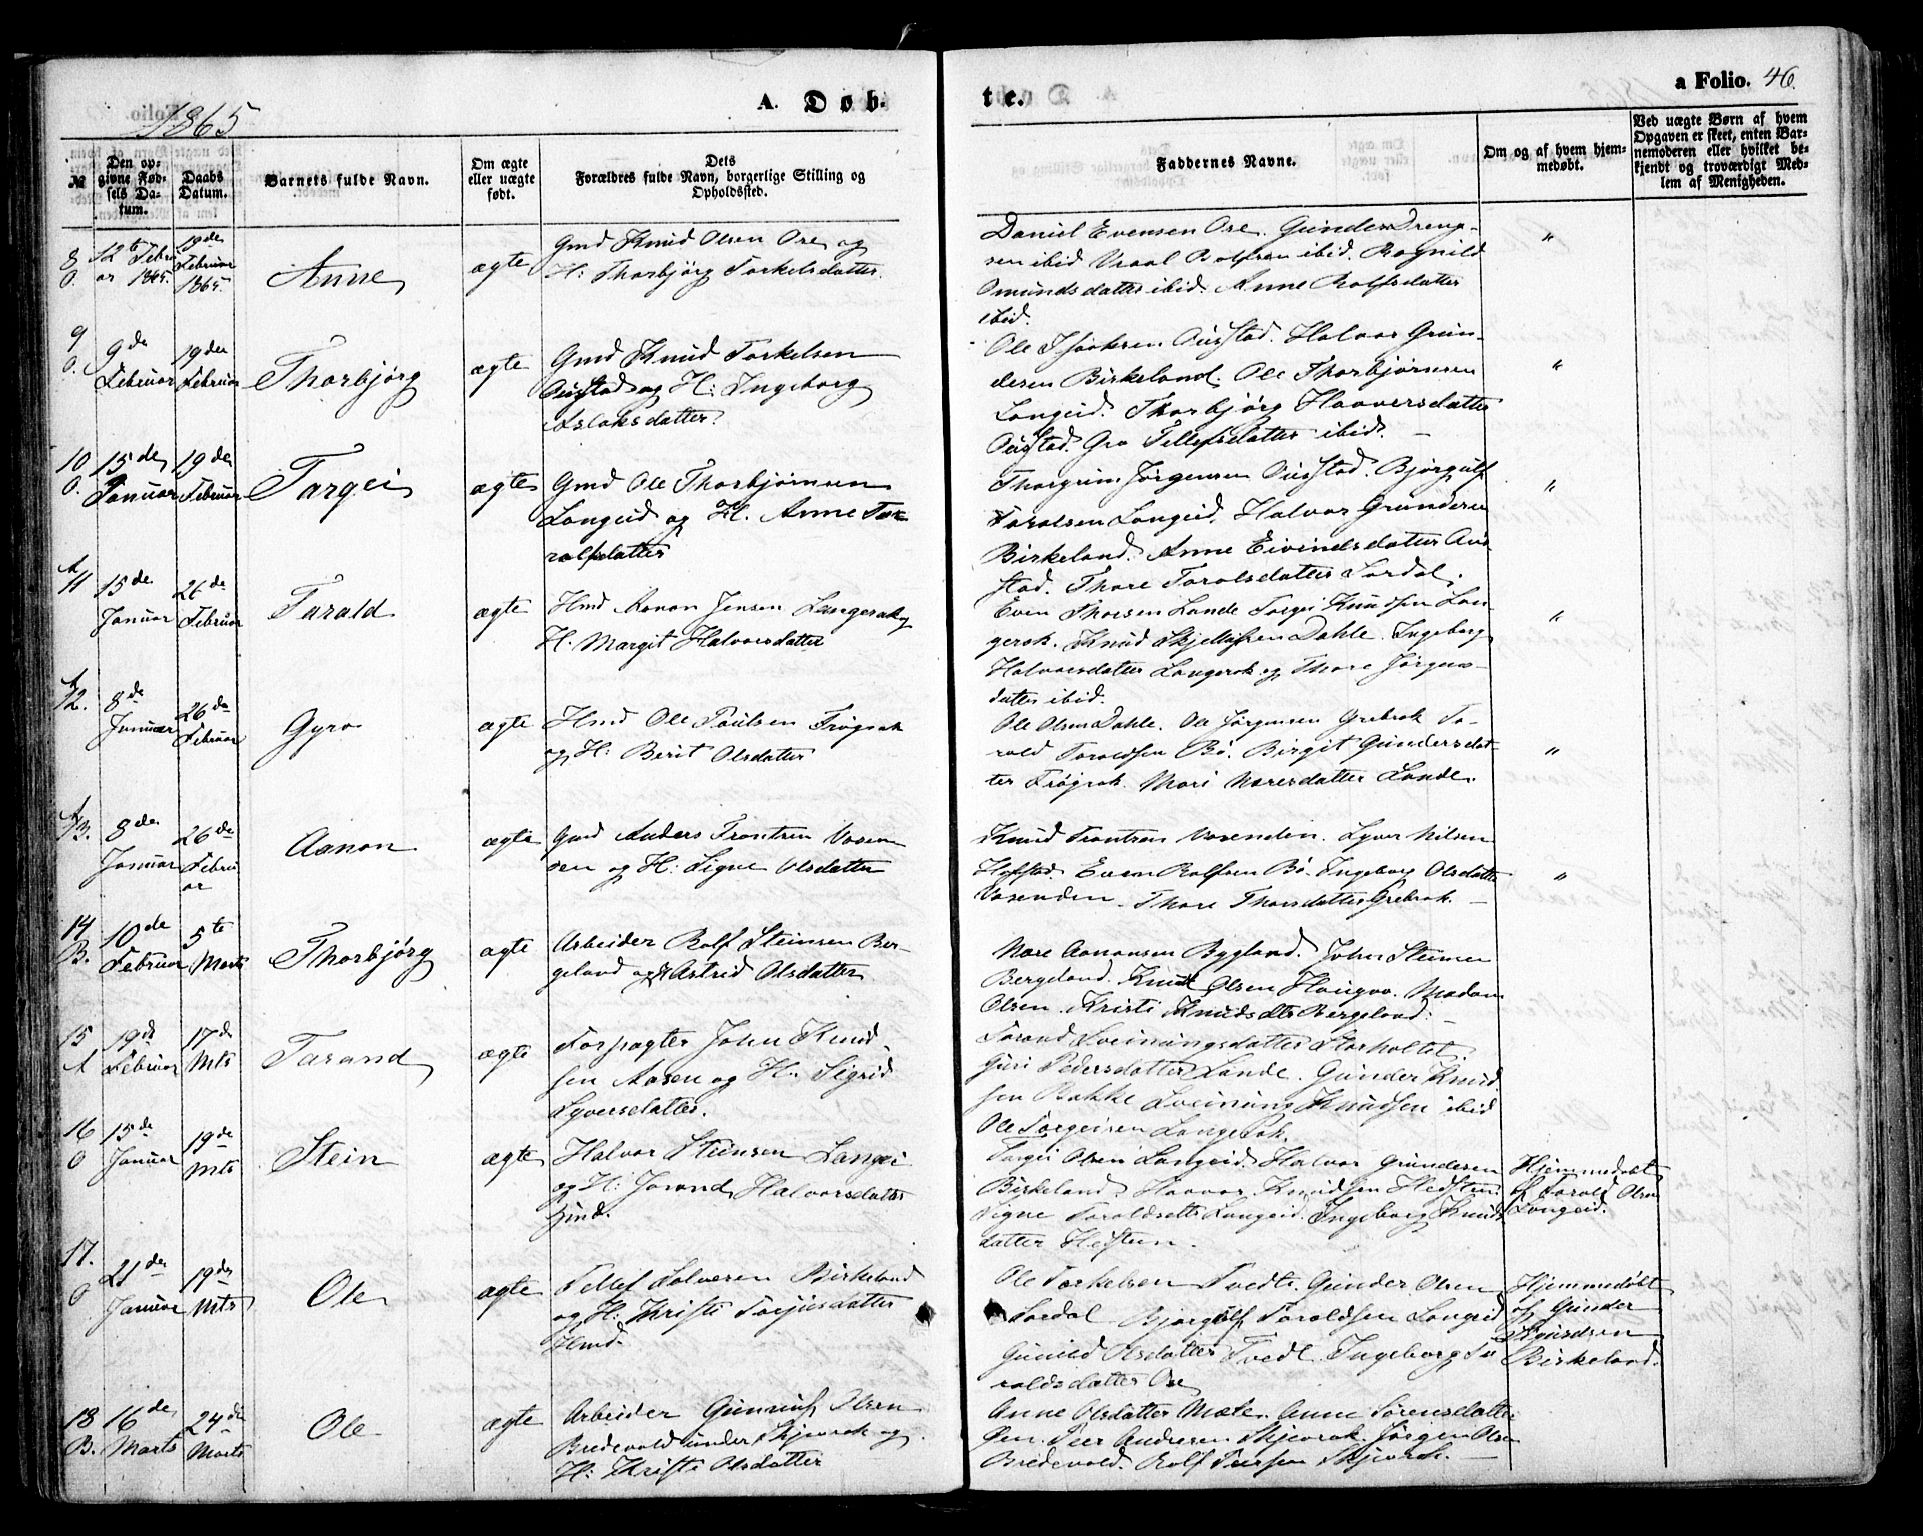 1865
A. Døb-
te.
a Folio. 46.
№
Den op-
givne Fød-
sels Da-
tum.
Daabs
Datum.
Barnets fulde Navn.
Om ægte
eller uægte
født.
Dets
Forældres fulde Navn, borgerlige Stilling og
Opholdssted.
Faddernes Navne.
Om og af hvem hjem-
medøbt.
Ved uægte Børn af hvem
Opgaven er skeet, enten Bar-
nemoderen eller hvilket be-
kjendt og troværdigt Med-
lem af Menigheden.
8
O.
12te Febru
ar 1865.
19de
Februar
1865.
Anne
ægte
Gmd Knud Olsen Ose og
H: Thorbjørg Torkelsdatter.
Daniel Evensen Ose. Gunder Dreng-
sen ibid Vraal Rolfsen ibid. Ragnild
Omundsdatter ibid. Anne Rolfsdatter
ibid.
"
9
O.
9de
Februar
19de
Februar
Thorbjørg
ægte
Gmd Knud Torkelsen
Austad og H: Ingeborg
Aslaksdatter.
Ole Isaaksen Austad. Halvor Gun-
dersen Birkeland. Ole Thorbjørnsen
Langeid. Thorbjørg Haaversdatter
Austad. Gro Tellefsdatter ibid. —
"
10
O.
15de
Januar
19de
Februar
Targei
ægte
Gmd Ole Thorbjørnsen
Langeid og H. Anne To-
rolfsdatter
Thorgrim Jørgensen Austad. Bjørgulf
Taralsen Langeid. Halvor Gundersen
Birkeland. Anne Eivindsdatter Au-
stad. Thore Taralsdatter Sordal.
"
11
A
15de
Januar
26de
Februar
Tarald
ægte
Hmd Aanon Jensen Langerak og
H. Margit Halvorsdatter
Even Thorsen Lande Targei Knudsen Lan-
gerak. Knud Skjellufsen Dahle. Ingeborg
Halvorsdatter Langerak og Thore Jørgens-
datter ibid.
"
A
12.
8de
Januar
26de
Februar
Gyro
ægte
Hmd Ole Paulsen Frøysak
og H: Berit Olsdatter
Ole Olsen Dahle. Ole Jørgensen Grebrok Ta-
rald Taraldsen Bø. Birgit Gundersdat-
ter Frøysak. Mari Naresdatter Lande.
"
A
13.
8de
Januar
26de
Febru
ar
Aanon
ægte
Gmd Anders Trontsen Vasen
den og H: Signe Olsdatter
Knud Trontsen Vasenden. Lyver Nilsen
Hofstad. Even Rolfsen Bø. Ingeborg Olsdatter
Vasenden. Thore Thorsdatter Grebrok. —
"
14
B.
10de
Februar
5te
Marts
Thorbjørg
ægte
Arbeider Rolf Steinsen Ber-
geland og H Astrid Olsdatter
Nare Aanonsen Bygland. John Steinsen
Bergeland. Knud Olsen Haugvo. Madam
Olsen. Kristi Knudsdtr Bergeland. —
15
A
19de
Februar
17de
Mts
Tarand
ægte
Forpagter John Knud-
sen Aasen og H: Sigrid
Lyversdatter.
Torand Sveinungsdatter Storholtet.
Guri Pedersdatter Lande. Gunder Knud
sen Bakke Sveinung Knudsen ibid
Ole Torgeirsen Langerak.
16
O
15de
Januar
19de
Mts
Stein
ægte
Halvor Steinsen Langei
og H: Jorand Halvorsdatter
Hmd.
Targei Olsen Langeid Halvor Gundersen
Birkeland. Haavor Knudsen Heistein
Signe Taraldsdtr Langeid. Ingeborg Knuds
datter Heistein.
Hjemmedøbt
af Tarald Olsen
Langeid.
17.
O
21de
Januar
19de
Mts
Ole
ægte
Tellef Salvesen Birkeland
og H: Kristi Torjusdatter
Hmd.
Ole Torkelsen Tvedt. Gunder Olsen
Sordal Bjørgulf Taraldsen Langeid
Gunild Olsdatter Tvedt Ingeborg Ta
raldsdatter Ose
Hjemmedøbt
af Gunder
Knudsen
Birkeland.
18
B.
16de
Marts
24de
Marts
Ole
ægte
Arbeider Gunnuf Olsen
Bredevold under Skjevrak og
H: Kristi Olsdatter
Anne Olsdatter Mæle. Anne Sørensdatter
Øen. Peer Andresen Skjevrak. Jørgen Olsen
Bredevold. Rolf Tarjesen Skjevrak. —